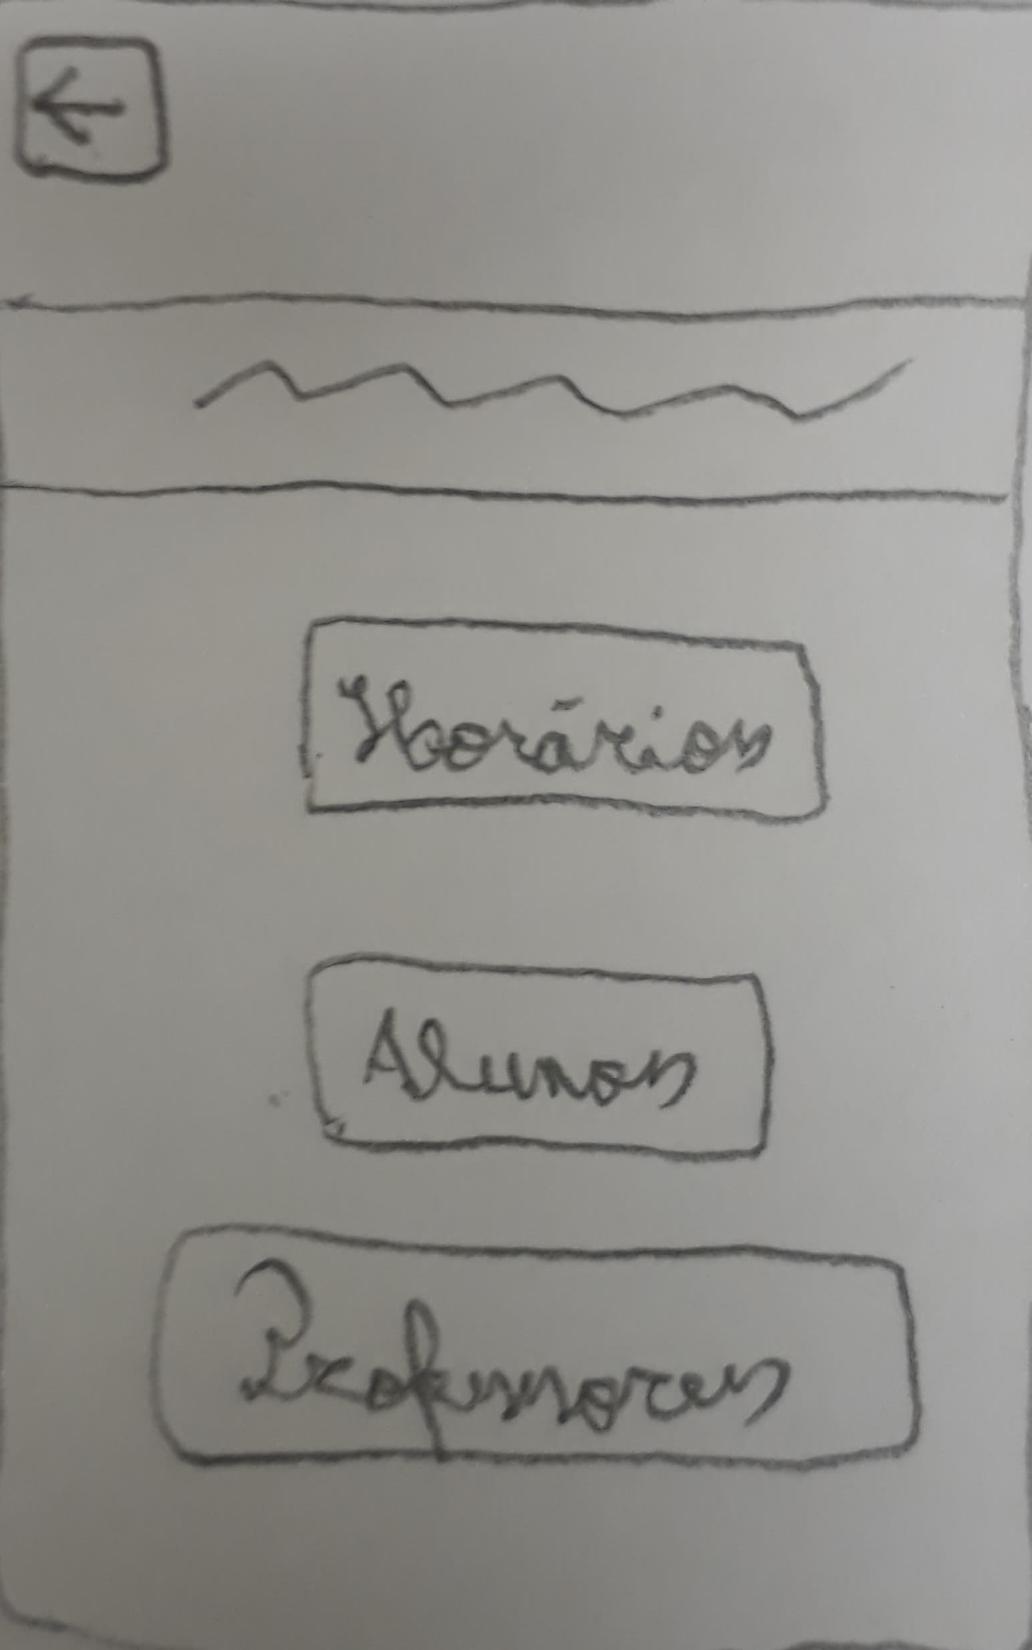 Horários
Alunos
Professores